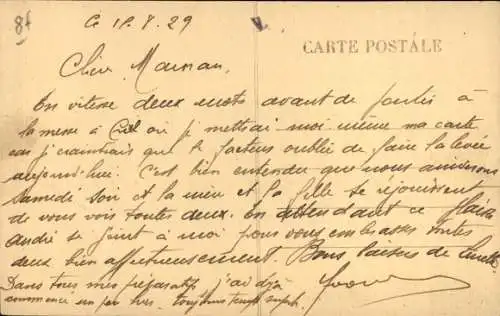 84
Ce 18.8.29
CARTE POSTALE
Chère Maman,
En vitesse deux mots avant de partir à
la messe à où je mettrai moi même ma carte
car je craindrais que le facteur oublie de faire la levée
aujourd'hui. C'est bien entendu que nous arriverons
Samedi soir et la mère et la fille se réjouissent
de vous voir toutes deux. En attendant ce plaisir
André se joint à moi pour vous embrasser toutes
deux bien affectueusement. Bons baisers de
Dans tous mes préparatifs j'ai déjà
commencé un peu hier. toujours temps